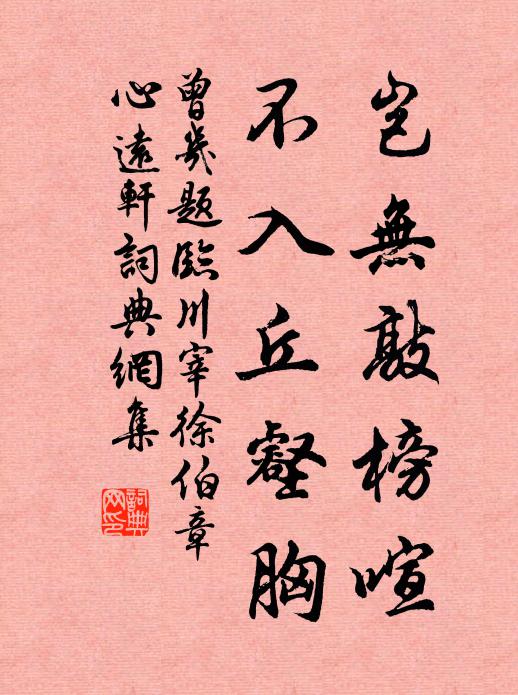 豈無敲榜喧
不入丘壑胸
曾幾題臨川宰徐伯章
心遠軒詞典網集
詞典網印